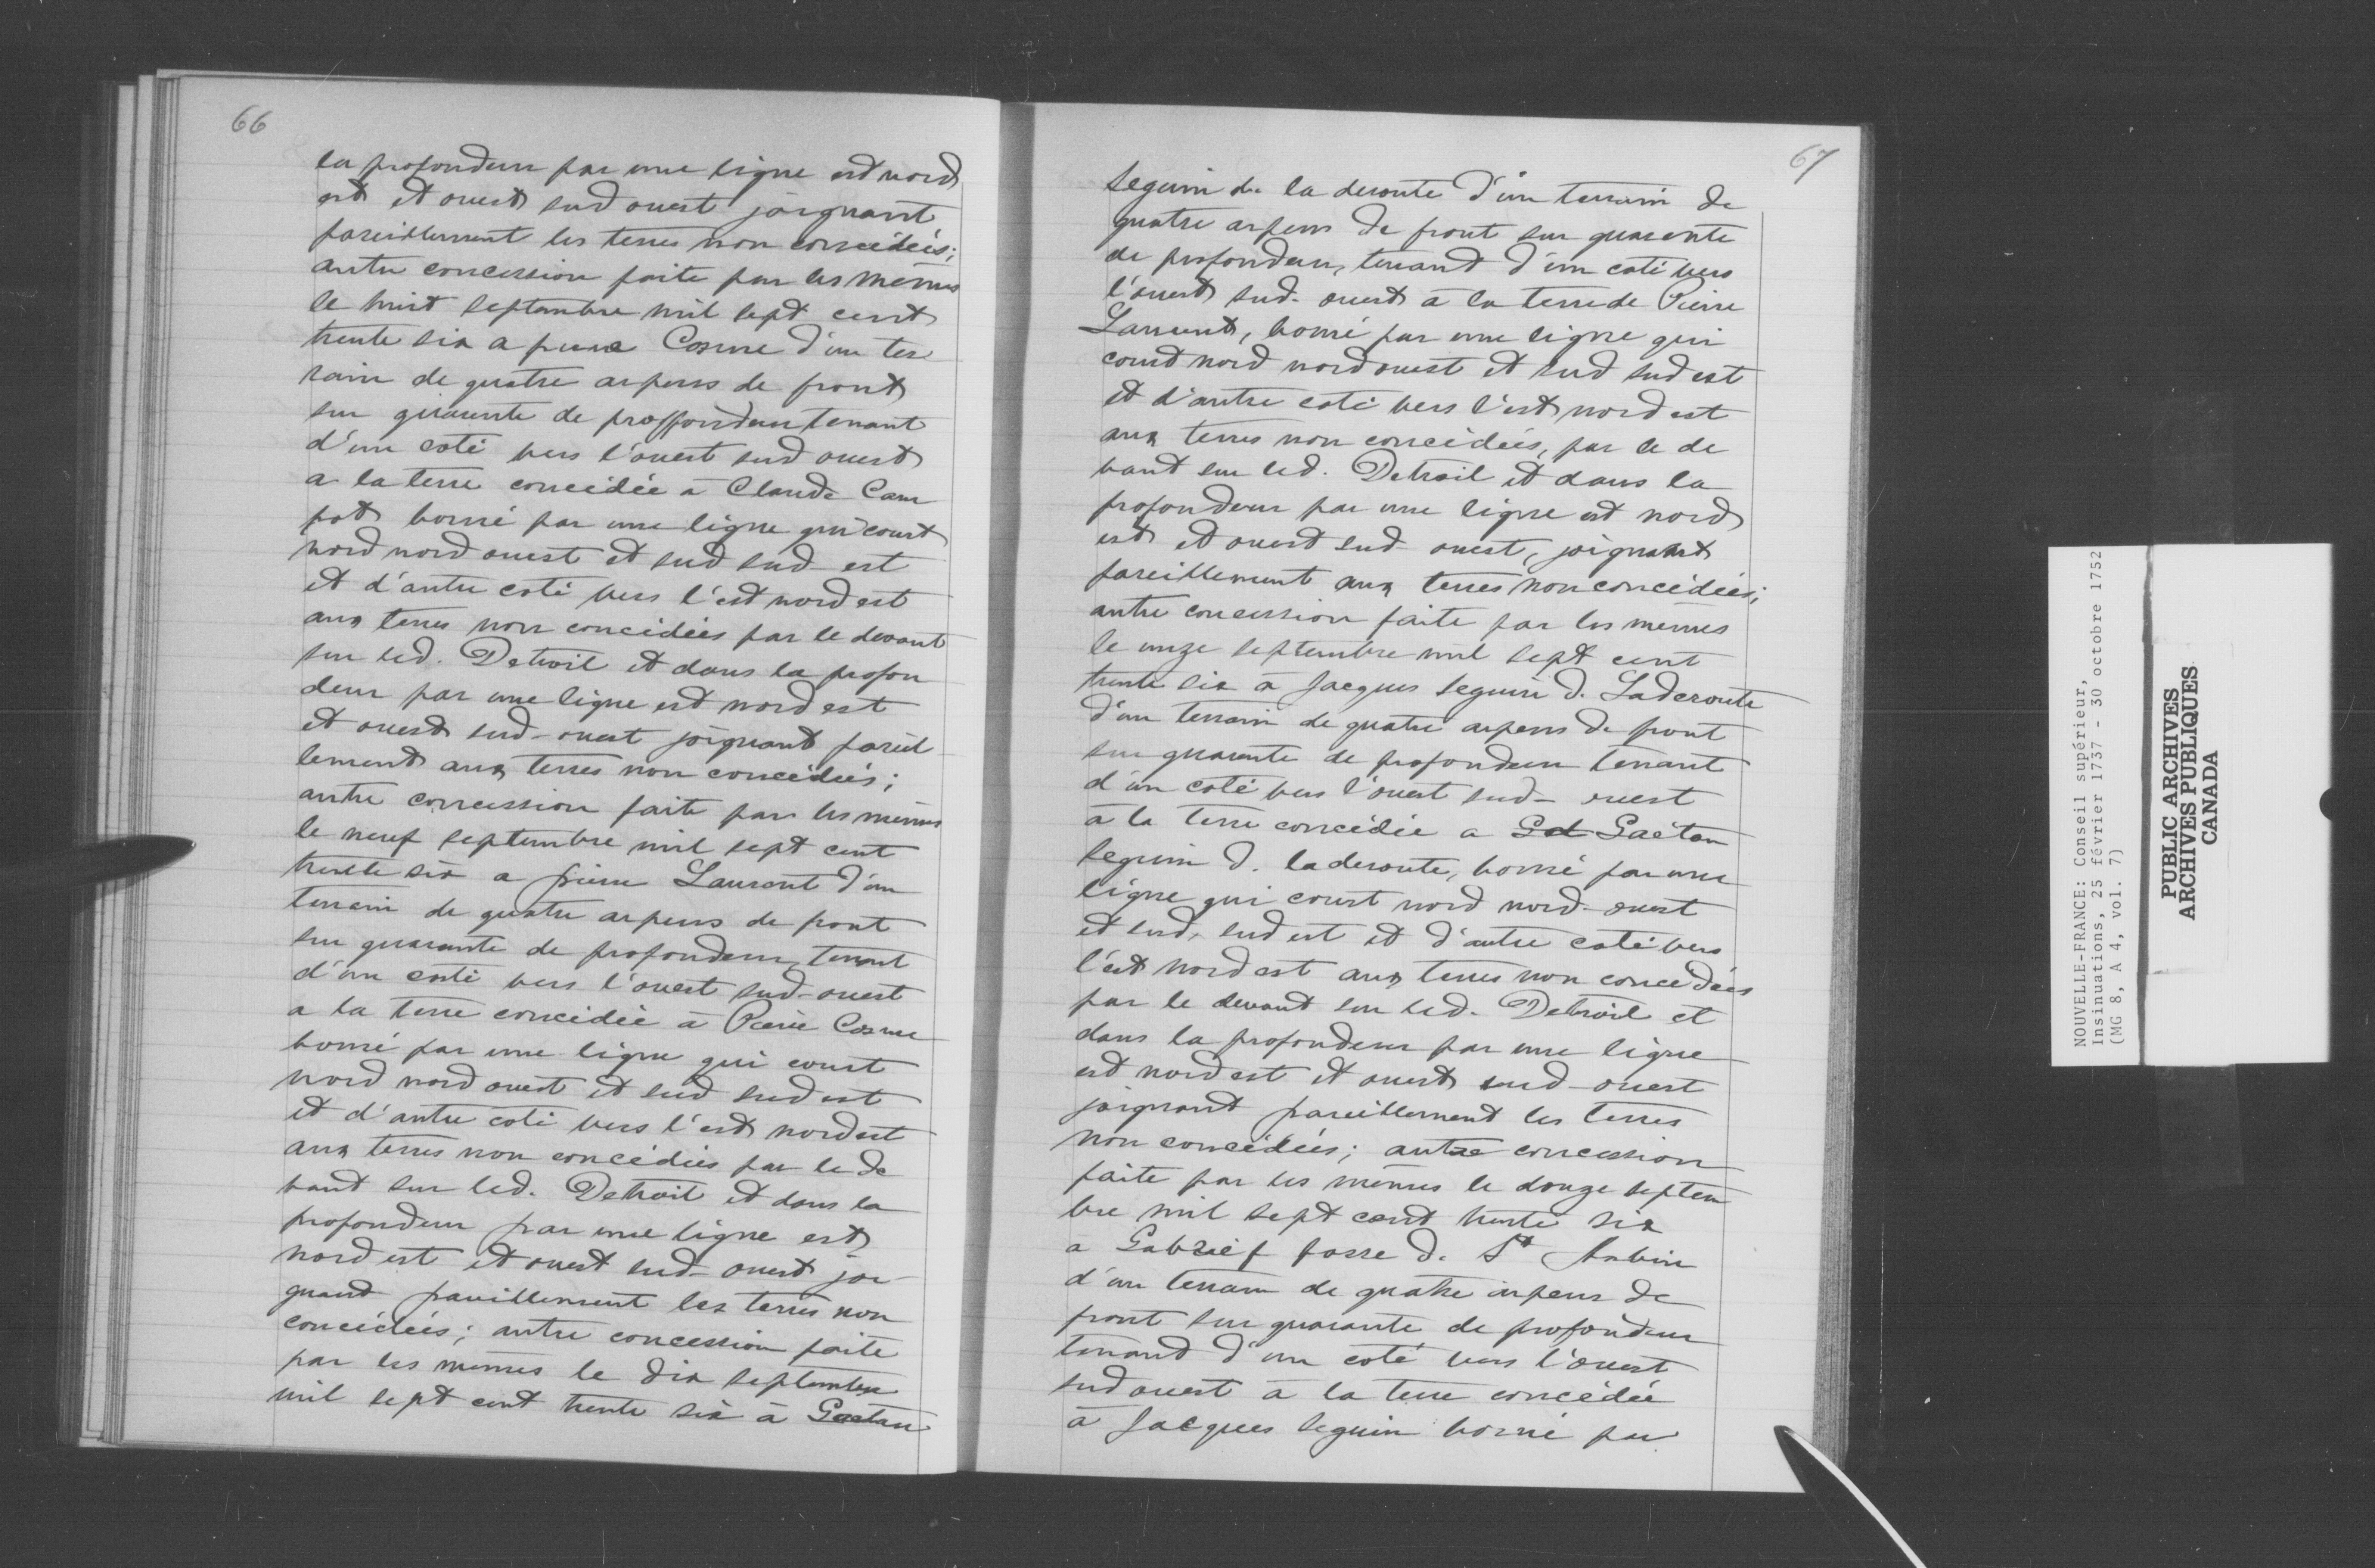 66
la profondeur par une ligne est nord
est et ouest sud ouest joignant
pareillement les terres non concédées;
autre concession faite par les mêmes
le huit septembre mil sept cent
trente six a pierre Cosme d'un ter
rain de quatre arpens de front
sur quarente de proffondeur tenant
d'un coté vers l'ouest sud ouest
a la terre concédée a Claude Cam
pot borné par une ligne qui court
nord nord ouest et sud sud-est
et d'autre coté vers l'est nord est
aux terres non concédées par le devant
sur led. Detroil et dans la profon
deur par une ligne est nord est
et ouest sud-ouest joignant pareil
lement aux terres non concédées;
autre concession faite par les mêmes
le neuf septembre mil sept cent
trente six a pierre Laurent d'un
terrain de quatre arpens de front
sur quarante de profondeur, tenant
d'un coté vers l'ouest sud-ouest
a la terre concédée à Pierre Cosme
borné par une ligne qui court
nord nord ouest et sud sud est
et d'autre coté vers l'est nord est
aux terres non concédées par le de
vant sur led. Detroit et dans la
profondeur par une ligne est
nord est et ouest sud-ouest joi-
gnant pareillement les terres non
concédées; autre concession faite
par les mêmes le dix septembre
mil sept cent trente six à Gaetan
67
Seguin de la deroute d'un terrain de
quatre arpens de front sur quarente
de profondeur, tenant d'un coté vers
l'ouest sud-ouest à la terre de Pierre
Laurent, borné par une ligne qui
court nord nord ouest et sud sud est
et d'autre coté vers l'est nord est
aux terres non concédées, par le de
vant sur led. Detroil et dans la
profondeur par une ligne est nord
est et ouest sud-ouest, joignant
pareillement aux terres non concédées;
autre concession faite par les mêmes
le onze septembre mil sept cent
trente six à Jacques Seguin d. Laderoute
d'un terrain de quatre arpens de front
sur quarente de profondeur tenant
d'un coté vers l'ouest sud-ouest
à la terre concédée a Gaëtan
Seguin d. laderoute, borné par une
ligne qui court nord nord-ouest
et sud, sud est et d'autre coté vers
l'est nord est aux terres non concedées
par le devant sur led. Detroil et
dans la profondeur par une ligne
est nord est et ouest sud-ouest
joignant pareillement les terres
non concédées; autre concession
faite par les mêmes le douze septem
bre mil sept cent trente six
a Gabriel fasse d. St Aubin
d'un terrain de quatre arpens de
front sur quarante de profondeur
tenant d'un coté vers l'ouest
sud ouest à la terre concédée
à Jacques Seguin borné par
NOUVELLE-FRANCE: Conseil supérieur,
Insinuations, 25 février 1737 - 30 octobre 1752
(MG 8, A 4, vol. 7)
PUBLIC ARCHIVES
ARCHIVES PUBLIQUES
CANADA